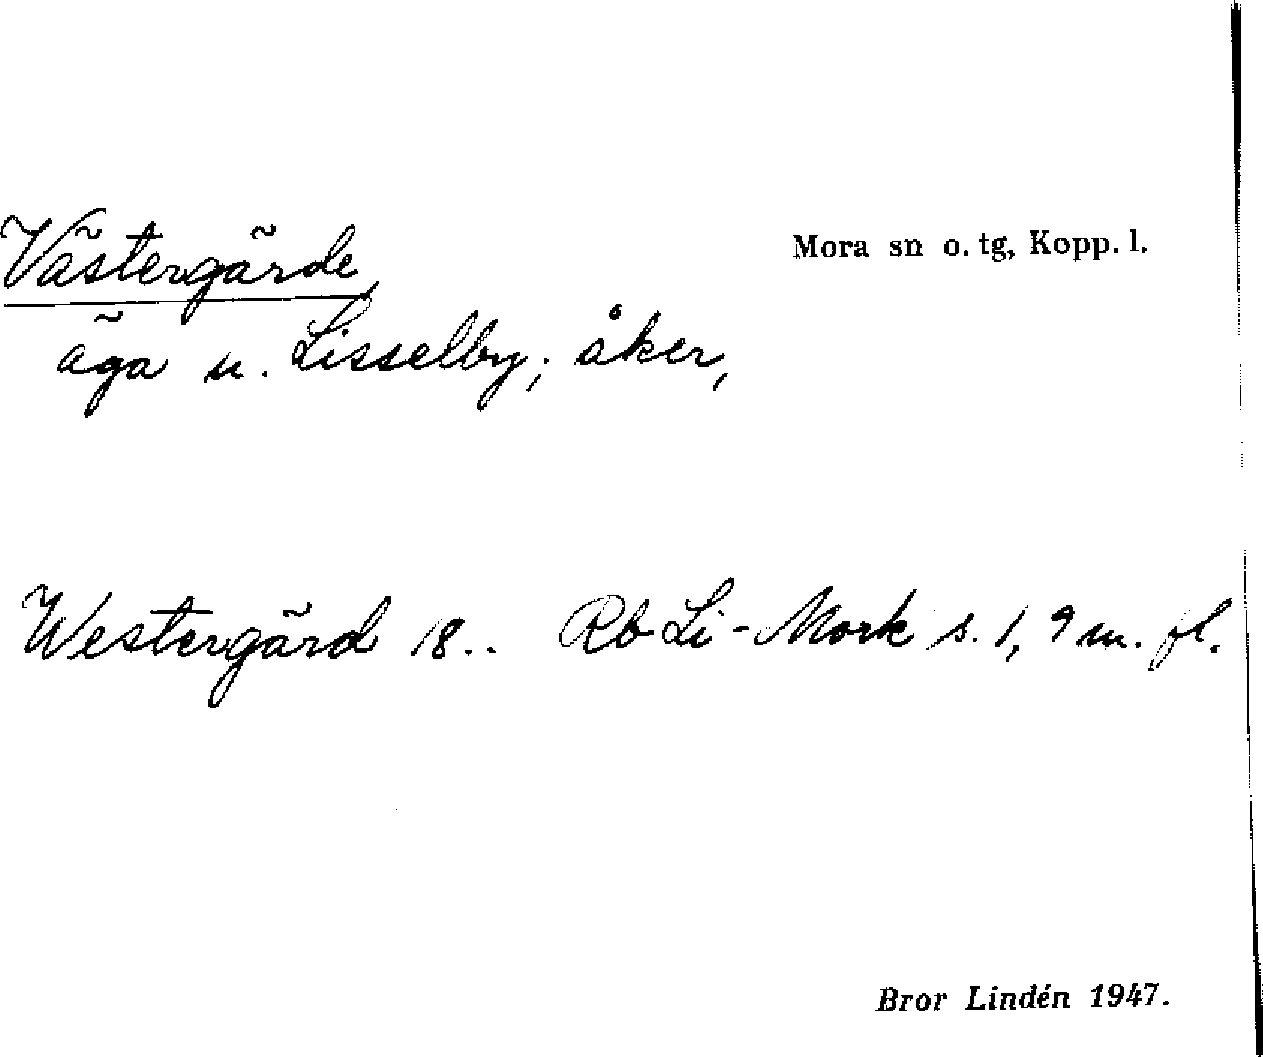 Västergärde,
Mora sn o. tg, Kopp. l.
äga u. Lisselby; åker,
Westergärd 18.. Rb Li-Mork s. 1, 9 m. fl.
Bror Lindén 1947.